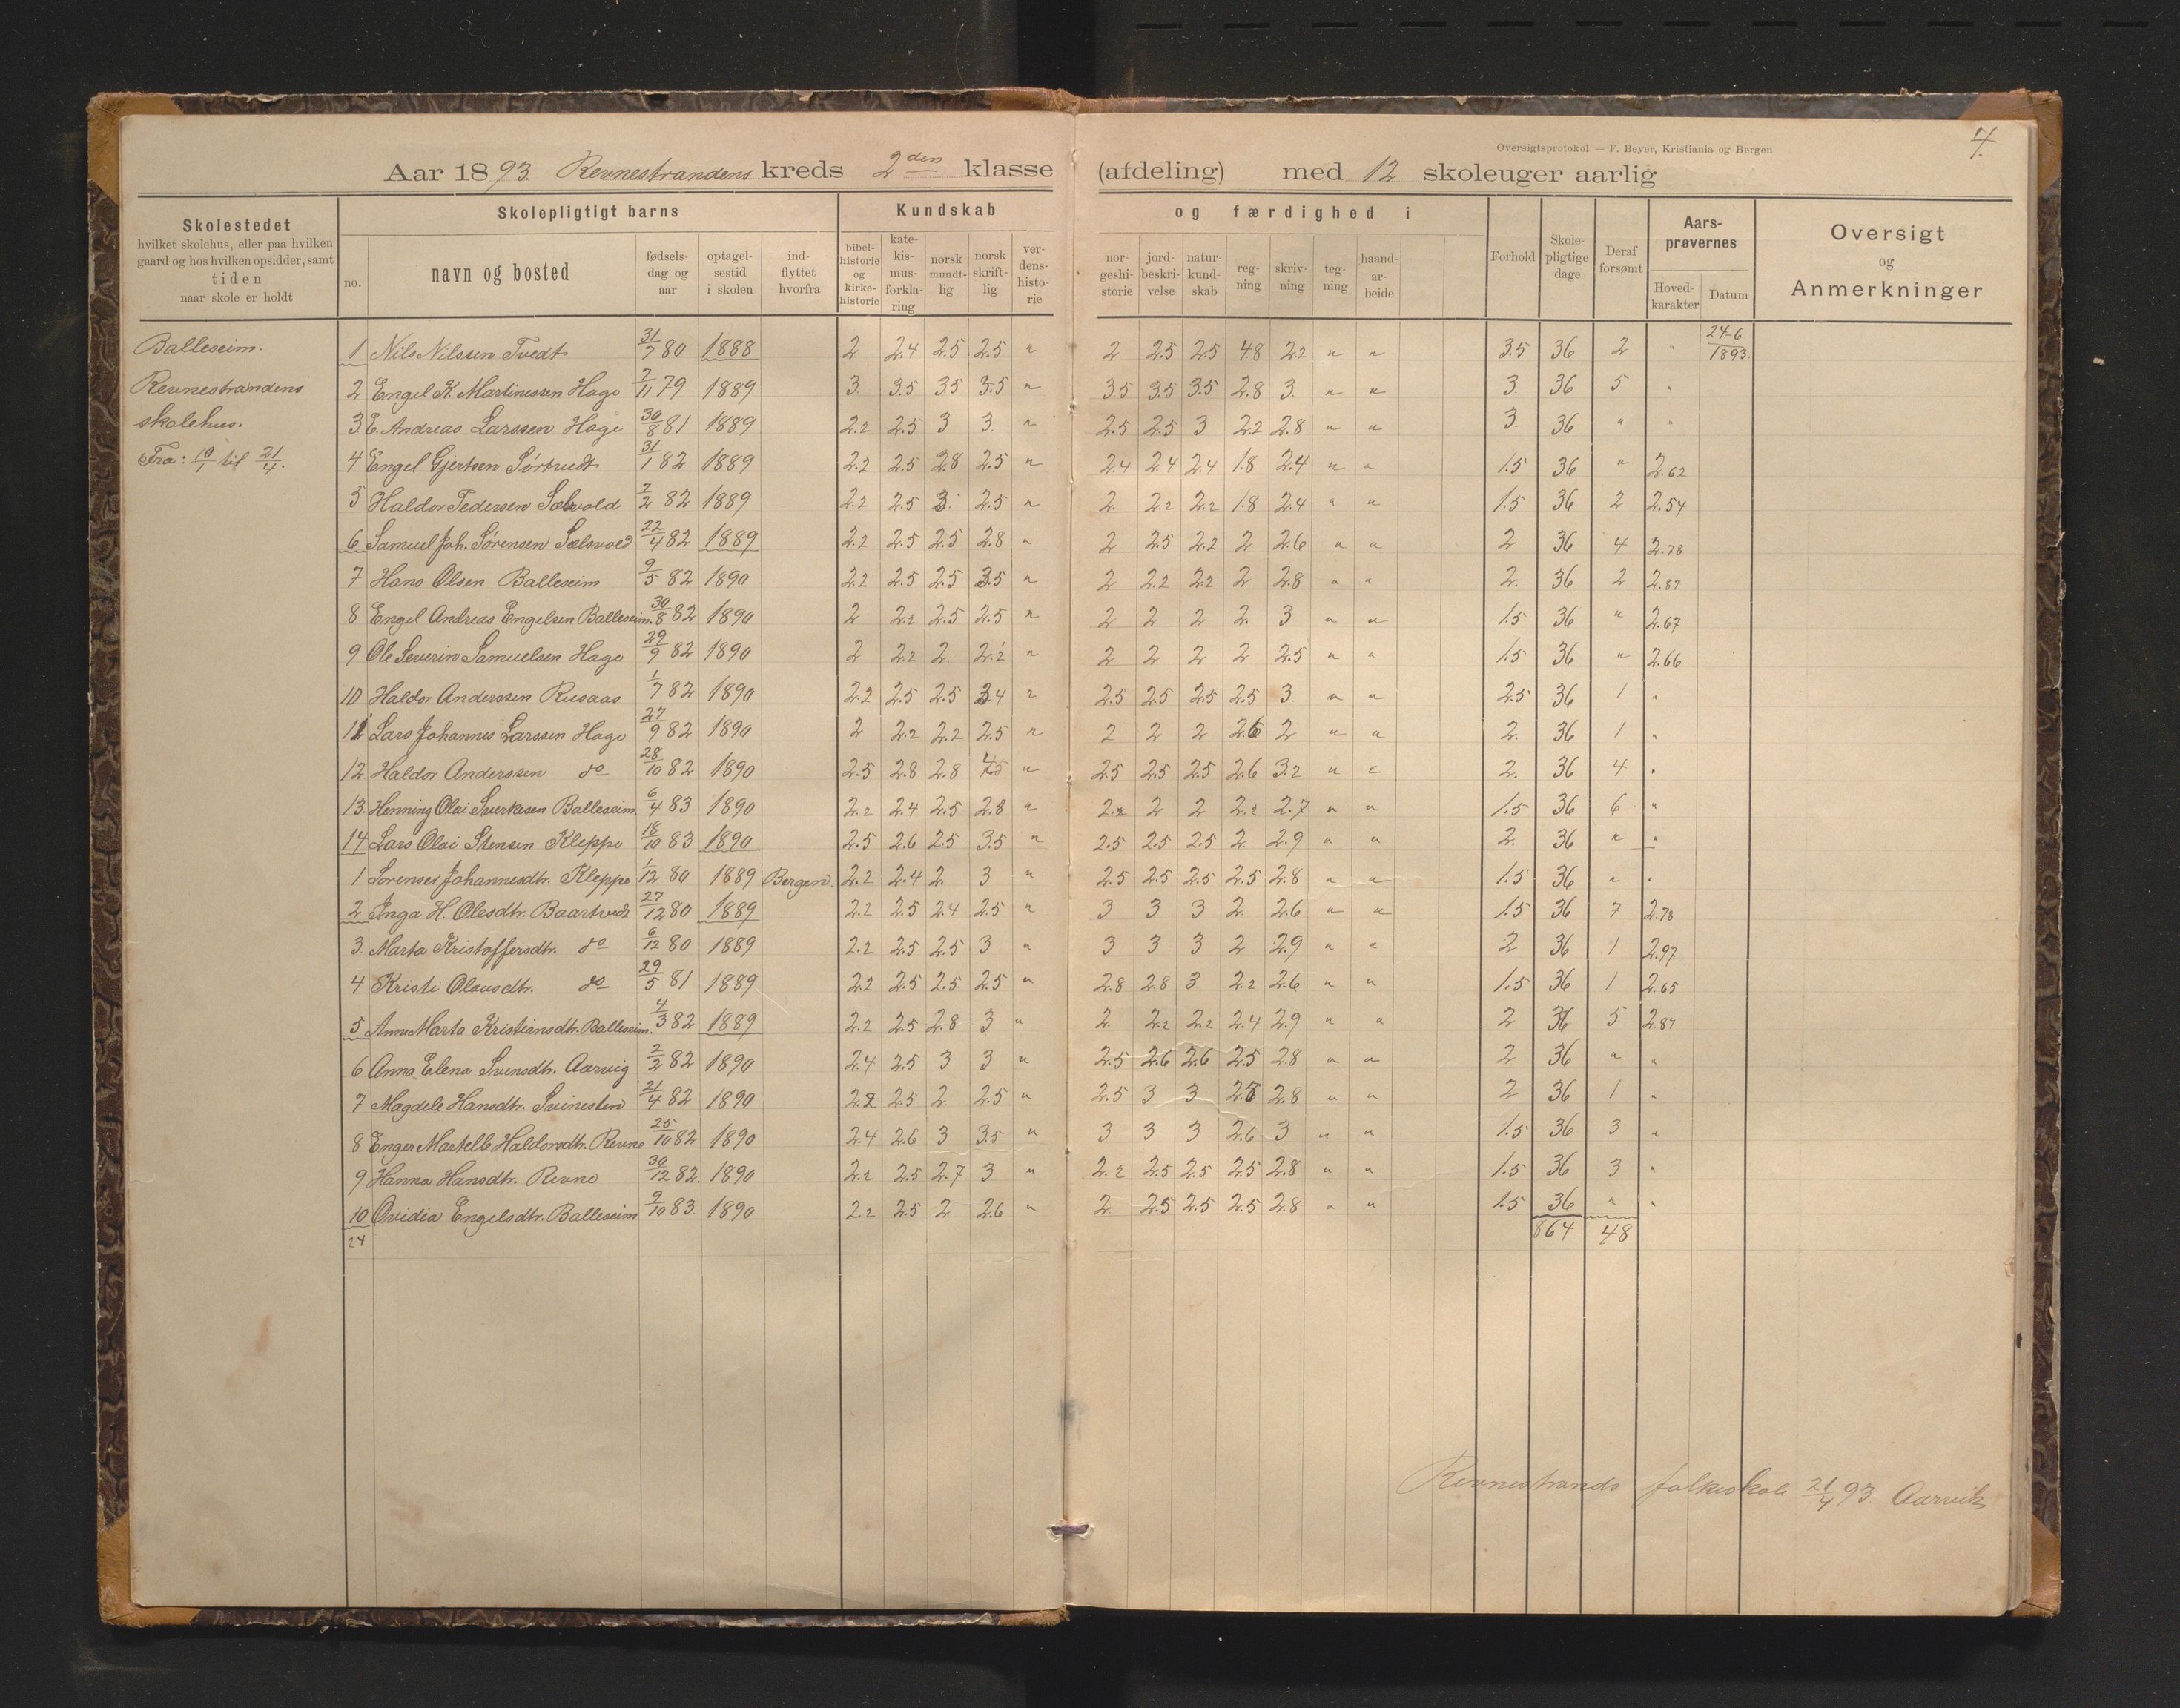 Oversigtsprotokol — F. Beyer, Kristiania og Bergen
7.
Aar 1893. Revnestrandens kreds 2den klasse (afdeling) med 12 skoleuger aarlig
Skolestedet
hvilket skolehus, eller paa hvilken
gaard og hos hvilken opsidder, samt
tiden
naar skole er holdt
Skolepligtigt barns
no. navn og bosted fødsels-dag og aar optagel-sestid i skolen ind-flyttet hvorfra
Kundskab og færdighed i
bibel-historie og kirke-historie kate-kis-mus-forkla-ring norsk mundt-lig norsk skrift-lig ver-dens-histo-rie nor-geshi-storie jord-beskri-velse natur-kund-skab reg-ning skriv-ning teg-ning haand-ar-beide
Forhold Skole-pligtige dage Deraf forsømt Aars-prøvernes Hoved-karakter Datum
Oversigt og Anmerkninger
Balleseim.
Revnestrandens
skolehus.
Fra: 10/1 til 21/4.
1 Nils Nilssen Tvedt 31/7 80 1888 2 2.4 2.5 2.5 " 2 2.5 2.5 4.8 2.2 " " 3.5 36 2 " 24-6/1893.
2 Engel K. Martinessen Hage 7/11 79 1889 3. 3.5 3.5 3.5 " 3.5 3.5 3.5 2.8 3. " " 3. 36 5 "
3. E. Andreas Larssen Hage 30/8 81 1889 2.2 2.5 3 3. " 2.5 2.5 3 2.2 2.8 " " 3. 36 " "
4 Engel Gjertsen Sørtvedt 31/1 82 1889 2.2 2.5 2.8 2.5 " 2.4 2.4 2.4 1.8 2.4 " " 1.5 36 " 2.62
5 Haldor Pedersen Sælsvold 7/2 82 1889 2.2 2.5 3. 2.5 " 2. 2.2 2.2 1.8 2.4 " " 1.5 36 2 2.54
6 Samuel Joh. Sørensen Sælsvold 22/4 82 1889 2.2 2.5 2.5 2.8 " 2 2.5 2.2 2 2.6 " " 2 36 4 2.78
7 Hans Olsen Balleseim 9/5 82 1890 2.2 2.5 2.5 3.5 " 2 2.2 2.2 2 2.8 " " 2. 36 2 2.87
8 Engel Andreas Engelsen Balleseim. 30/8 82 1890 2 2.2 2.5 2.5 " 2 2 2 2. 3 " " 1.5 36 " 2.67
9 Ole Severin Samuelsen Hage 29/9 82 1890 2 2.2 2 2.2 " 2 2 2 2 2.5 " " 1.5 36 " 2.66
10 Haldor Anderssen Rusaas 1/7 82 1890 2.2 2.5 2.5 3.4 " 2.5 2.5 2.5 2.5 3. " " 2.5 36 1 "
11 Lars Johannes Larssen Hage 27/9 82 1890 2 2.2 2.2 2.5 " 2 2 2 2.6 2 " " 2. 36 1 "
12. Haldor Anderssen do 28/10 82 1890 2.5 2.8 2.8 4.5 " 2.5 2.5 2.5 2.6 3.2 " " 2. 36 4 "
13. Henning Olai Sverkesen Balleseim. 6/4 83 1890 2.2 2.4 2.5 2.8 " 2.2 2 2 2.2 2.7 " " 1.5 36 6 "
14 Lars Olai Stensen Kleppe 18/10 83 1890 2.5 2.6 2.5 3.5 " 2.5 2.5 2.5 2. 2.9 " " 2. 36 " "
1 Lorense Johannesdtr. Kleppe 1/12 80 1889 Bergen. 2.2 2.4 2. 3 " 2.5 2.5 2.5 2.5 2.8 " " 1.5 36 " "
2 Inga H. Olesdtr. Baartvedt 27/12 80 1889 2.2 2.5 2.4 2.5 " 3 3 3 2. 2.6 " " 1.5 36 7 2.78
3. Marta Kristoffersdtr. do 6/12 80 1889 2.2 2.5 2.5 3 " 3 3 3 2 2.9 " " 2 36 1 2.97
4 Kristi Olausdtr. do 29/5 81 1889 2.2 2.5 2.5 2.5 " 2.8 2.8 3 2.2 2.6 " " 1.5 36 1 2.65
5 Anne Marta Kristiansdtr. Balleseim. 4/3 82 1889 2.2 2.5 2.8 3 " 2. 2.2 2.2 2.4 2.9 " " 2 36 5 2.87
6 Anna Elena Svensdtr. Aarvig 2/2 82 1890 2.4 2.5 3 3 " 2.5 2.6 2.6 2.5 2.8 " " 2 36 " "
7 Magdele Hansdtr. Svinesten 21/4 82 1890 2.2 2.5 2 2.5 " 2.5 3 3 2.8 2.8 " " 2 36 1 "
8 Enger Martelle Haldorsdtr. Revne 25/10 82 1890 2.4 2.6 3 3.5 " 3 3 3 2.6 3 " " 1.5 36 3 "
9 Hanna Hansdtr. Revne 30/12 82. 1890 2.2 2.5 2.7 3 " 2.2 2.5 2.5 2.5 2.8 " " 1.5 36 3 "
10 Ovidia Engelsdtr. Balleseim 9/10 83. 1890 2.2 2.5 2 2.6 " 2. 2.5 2.5 2.5 2.8 " " 1.5 36 " "
24 864 48
Revnestrands folkeskole 21/4 93. Aarvik